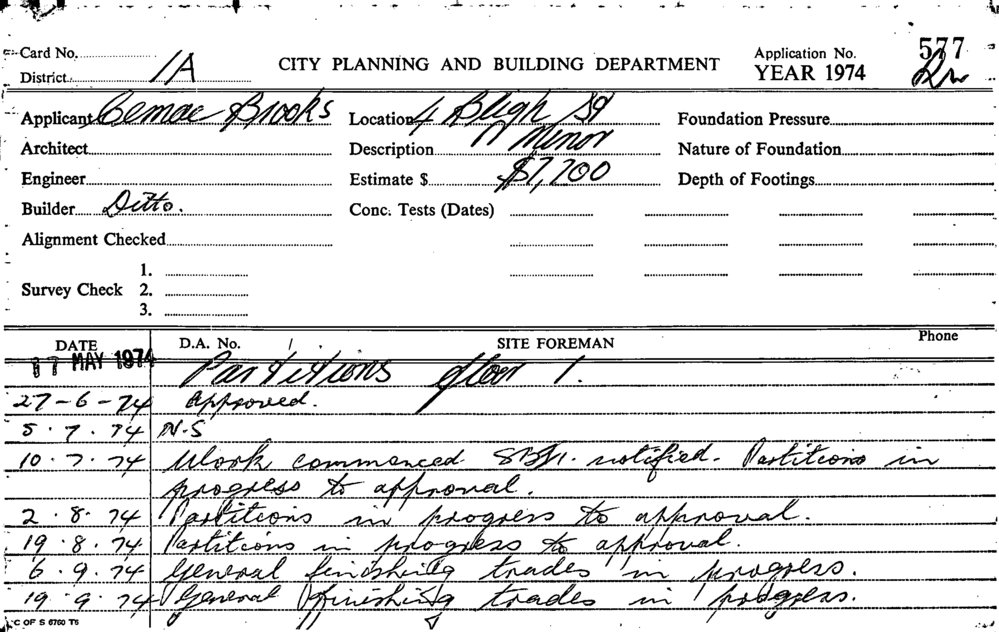 Card No. CITY PLANNING AND BUILDING DEPARTMENT Application No. 577
District 1A YEAR 1974
Applicant Cemac Brooks Location 4 Bligh St Foundation Pressure
Architect Description Minor Nature of Foundation
Engineer Estimate $ $7,700 Depth of Footings
Builder Ditto. Conc. Tests (Dates)
Alignment Checked
1.
Survey Check 2.
3.
DATE D.A. No. SITE FOREMAN Phone
17 MAY 1974 Partitions floor 1.
27-6-74 Approved.
5.7.74 N.S
10.7.74 Work commenced notified. Partitions in
progress to approval.
2.8.74 Partitions in progress to approval.
19.8.74 Partitions in progress to approval.
6.9.74 General finishing trades in progress.
19.9.74 General finishing trades in progress.
C OF S 6760 T6